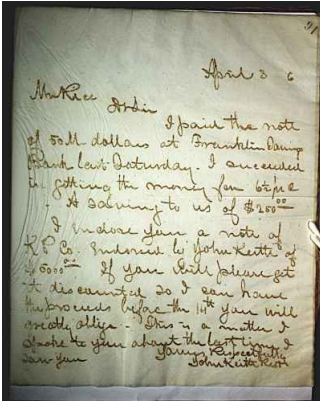 91
April 3 6
Mr Rice
Dr Sir
I paid the note
of 50 M dollars at Franklin Savings
Bank last Saturday. I succeeded
in getting the money for 6%
A saving to us of $250.00
I endose you a note of
K P Co. Endorsed by John Keith of
$5000.00 If you will please get
it discounted so I can have
the proceeds before the 14th you will
greatly oblige - This is a matter I
spoke to you about the last time I
saw you
Yours Respectfully
John Keith